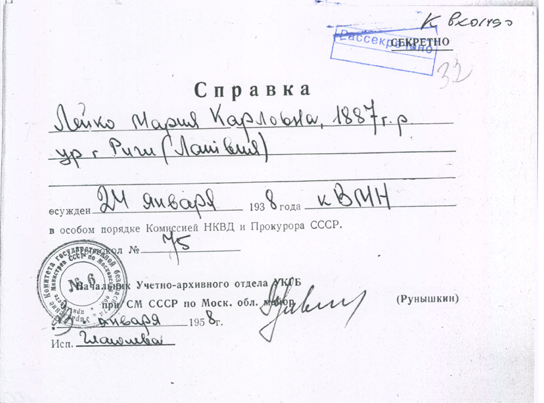 К
Рассекречено
СЕКРЕТНО
32
Справка
Лейко Мария Карловна, 1887 г.р.
ур г Риги (Латвия)
осужден 24 января 1938 года к ВМН
в особом порядке Комиссией НКВД и Прокурора СССР.
№ 75
№ 6
Начальник Учетно-архивного отдела УКГБ
при СМ СССР по Моск. обл. майор
(Рунышкин)
января 1958 г.
Исп.